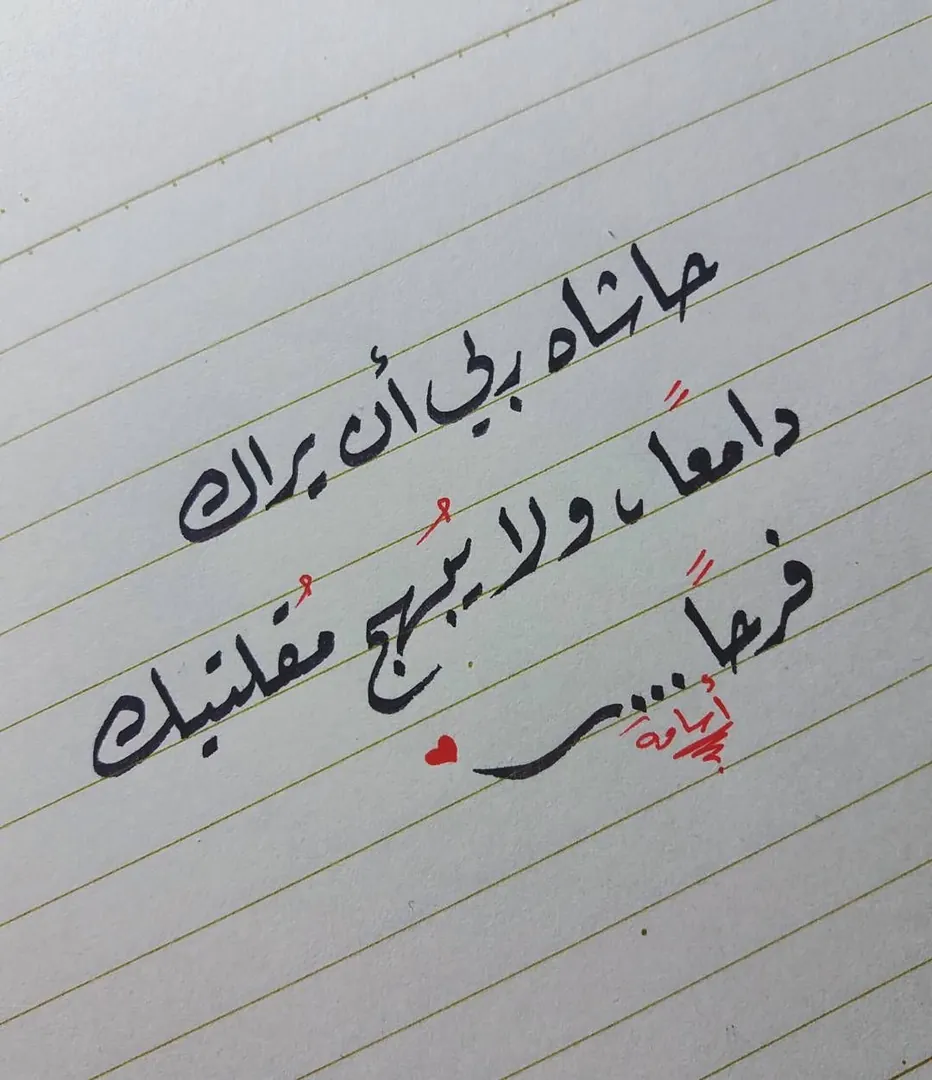 حاشاه ربي أن يراك
دامعاً، ولا يُبهج مُقلتيك
فرحاً...
أسامة